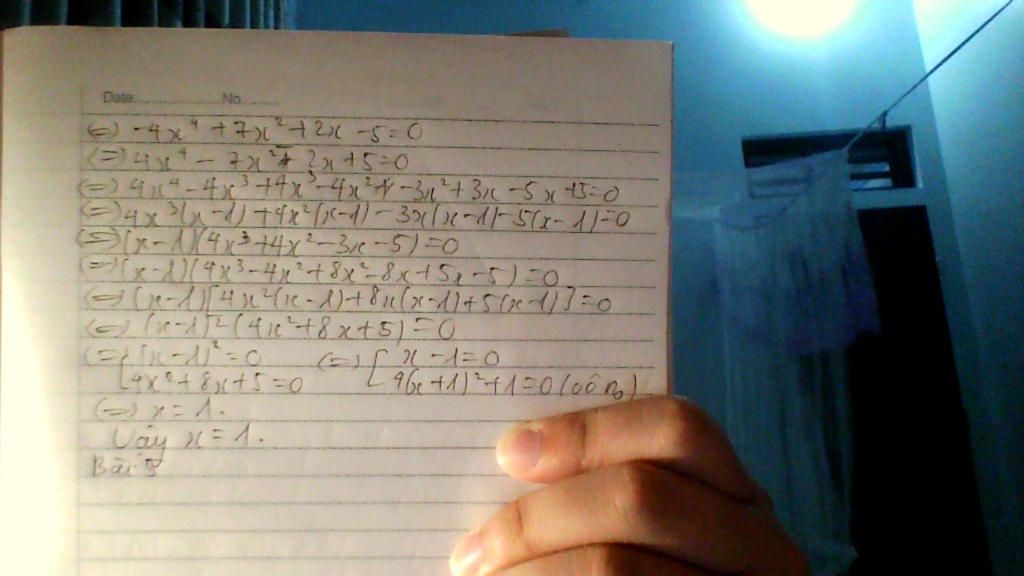 Date No
(=) -4x⁴ + 7x² + 2x - 5 = 0
(=) 4x⁴ - 7x² - 2x + 5 = 0
(=) 4x⁴ - 4x³ + 4x³ - 4x² - 3x² + 3x - 5x + 5 = 0
(=) 4x³(x - 1) + 4x²(x - 1) - 3x(x - 1) - 5(x - 1) = 0
(=) (x - 1)(4x³ + 4x² - 3x - 5) = 0
(=) (x - 1)(4x³ - 4x² + 8x² - 8x + 5x - 5) = 0
(=) (x - 1)[4x²(x - 1) + 8x(x - 1) + 5(x - 1)] = 0
(=) (x - 1)²(4x² + 8x + 5) = 0
(=) [(x - 1)² = 0 (=) [x - 1 = 0
4x² + 8x + 5 = 0 4(x + 1)² + 1 = 0 (vô no)
(=) x = 1.
Vậy x = 1.
Bài 5